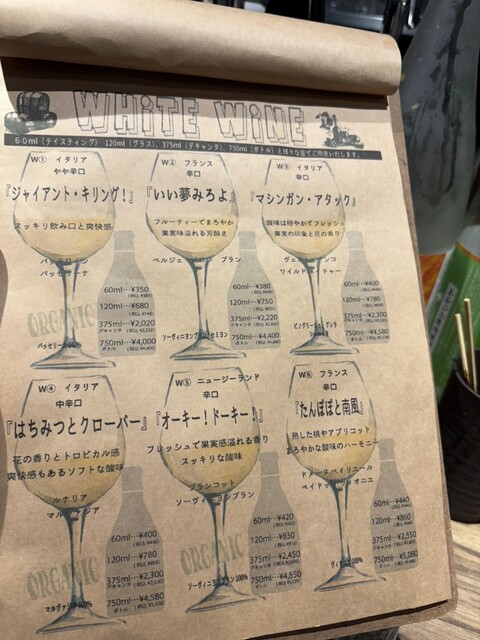 WHiTE WiNE
60ml(テイスティング) 120ml(グラス)、375ml(デキャンタ)、750ml(ボトル)と様々な量でご用意いたします。
W① イタリア
やや辛口
『ジャイアント・キリング!』
スッキリ飲み口と爽快感
パッセリーナ
ORGANIC
60ml…¥350
120ml…¥680
375ml…¥2,020
デキャンタ
750ml…¥4,000
ボトル
(税込 ¥4,400)
W② フランス
辛口
『いい夢みろよ』
フルーティーでまろやか
果実味溢れる芳醇さ
ベルジュ ブラン
60ml…¥380
120ml…¥750
375ml…¥2,220
デキャンタ
750ml…¥4,400
ボトル
W③ イタリア
辛口
『マシンガン・アタック』
酸味は穏やかでフレッシュ
果実の印象と花の香り
60ml…¥400
120ml…¥780
375ml…¥2,300
デキャンタ
750ml…¥4,580
ボトル
W④ イタリア
中辛口
『はちみつとクローバー』
花の香りとトロピカル感
爽快感もあるソフトな酸味
ルナリア
マルヴァジア
ORGANIC
マルヴァジア100%
60ml…¥400
120ml…¥780
375ml…¥2,300
デキャンタ
750ml…¥4,580
ボトル
W⑤ ニュージーランド
辛口
『オーキー!ドーキー!』
フレッシュで果実感溢れる香り
スッキリな酸味
ブランコット
ソーヴィニヨンブラン
ORGANIC
ソーヴィニヨンブラン100%
60ml…¥420
120ml…¥830
375ml…¥2,450
デキャンタ
750ml…¥4,850
ボトル
W⑥ フランス
辛口
『たんぽぽと南風』
熟した桃やアプリコット
まろやかな酸味のハーモニー
60ml…¥440
120ml…¥860
375ml…¥2,550
デキャンタ
750ml…¥5,080
ボトル